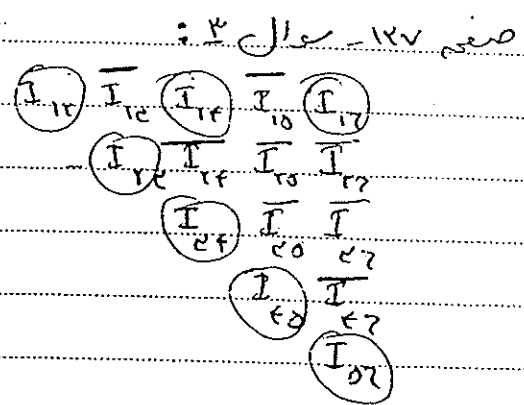 صفحه ۱۲۷ - سوال ۳ :
I۱۲ I۱۳ I۱۴ I۱۵ I۱۶
I۲۳ I۲۴ I۲۵ I۲۶
I۳۴ I۳۵ I۳۶
I۴۵ I۴۶
I۵۶